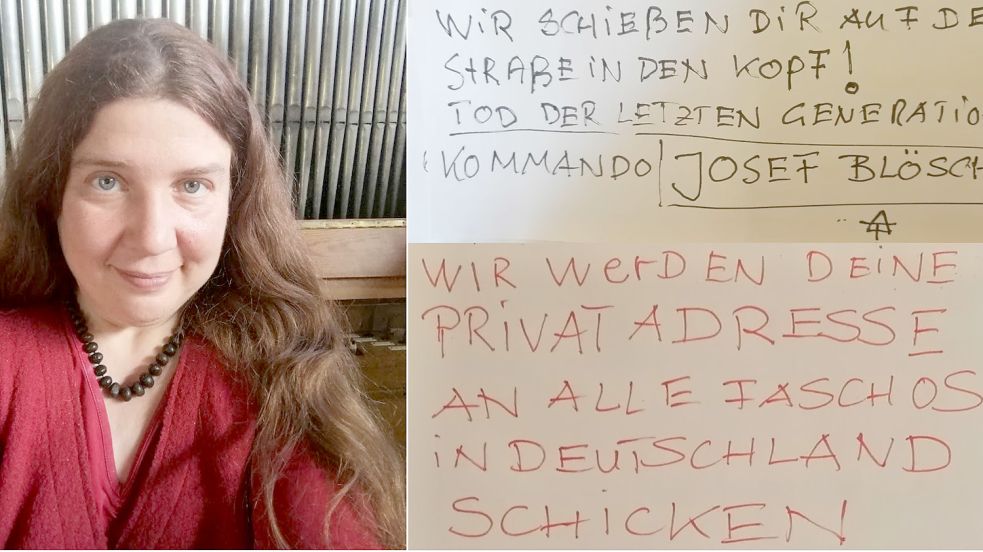 WiR SCHIEßEN DiR AUF DE
STRAßE iN DEN KOPF!
TOD DER LETZTEN GENERATIO
KOMMANDO JOSEF BLÖSCH
WIR WerDEN DEiNE
PRiVATADRESSE
AN ALLE FASCHOS
iN DEUTSCHLAND
SCHiCKEN!